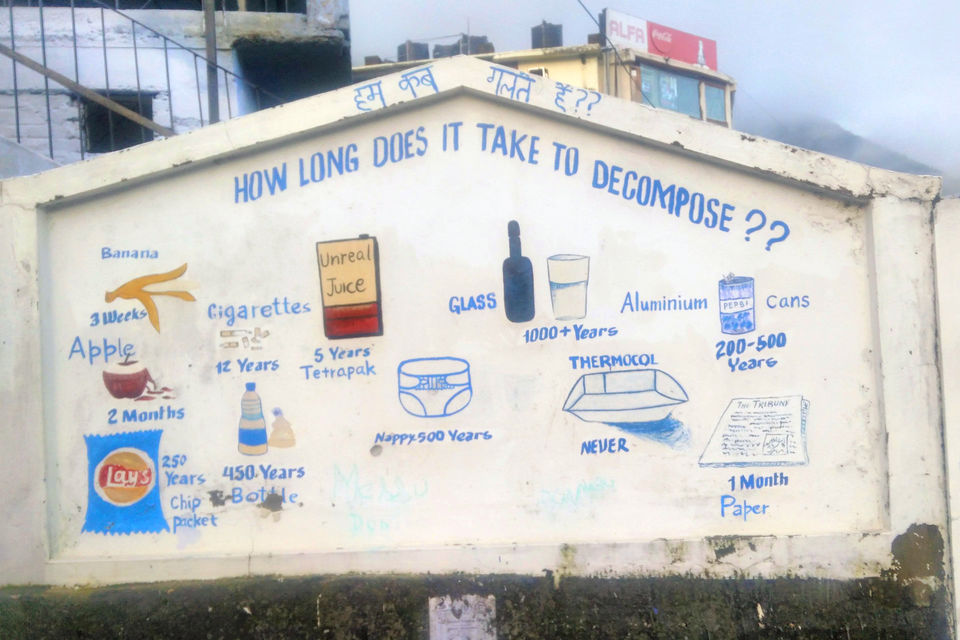 ALFA
Coca-Cola
हम कब गलत हैं??
HOW LONG DOES IT TAKE TO DECOMPOSE ??
Banana
3 Weeks
Apple
2 Months
Lay's
250
Years
Chip
packet
Cigarettes
12 Years
450 Years
Bottle
Unreal
Juice
5 Years
Tetrapak
Nappy 500 Years
GLASS
1000+Years
THERMOCOL
NEVER
Aluminium
PEPBI
Cans
200-500
Years
THE TRIBUNE
1 Month
Paper